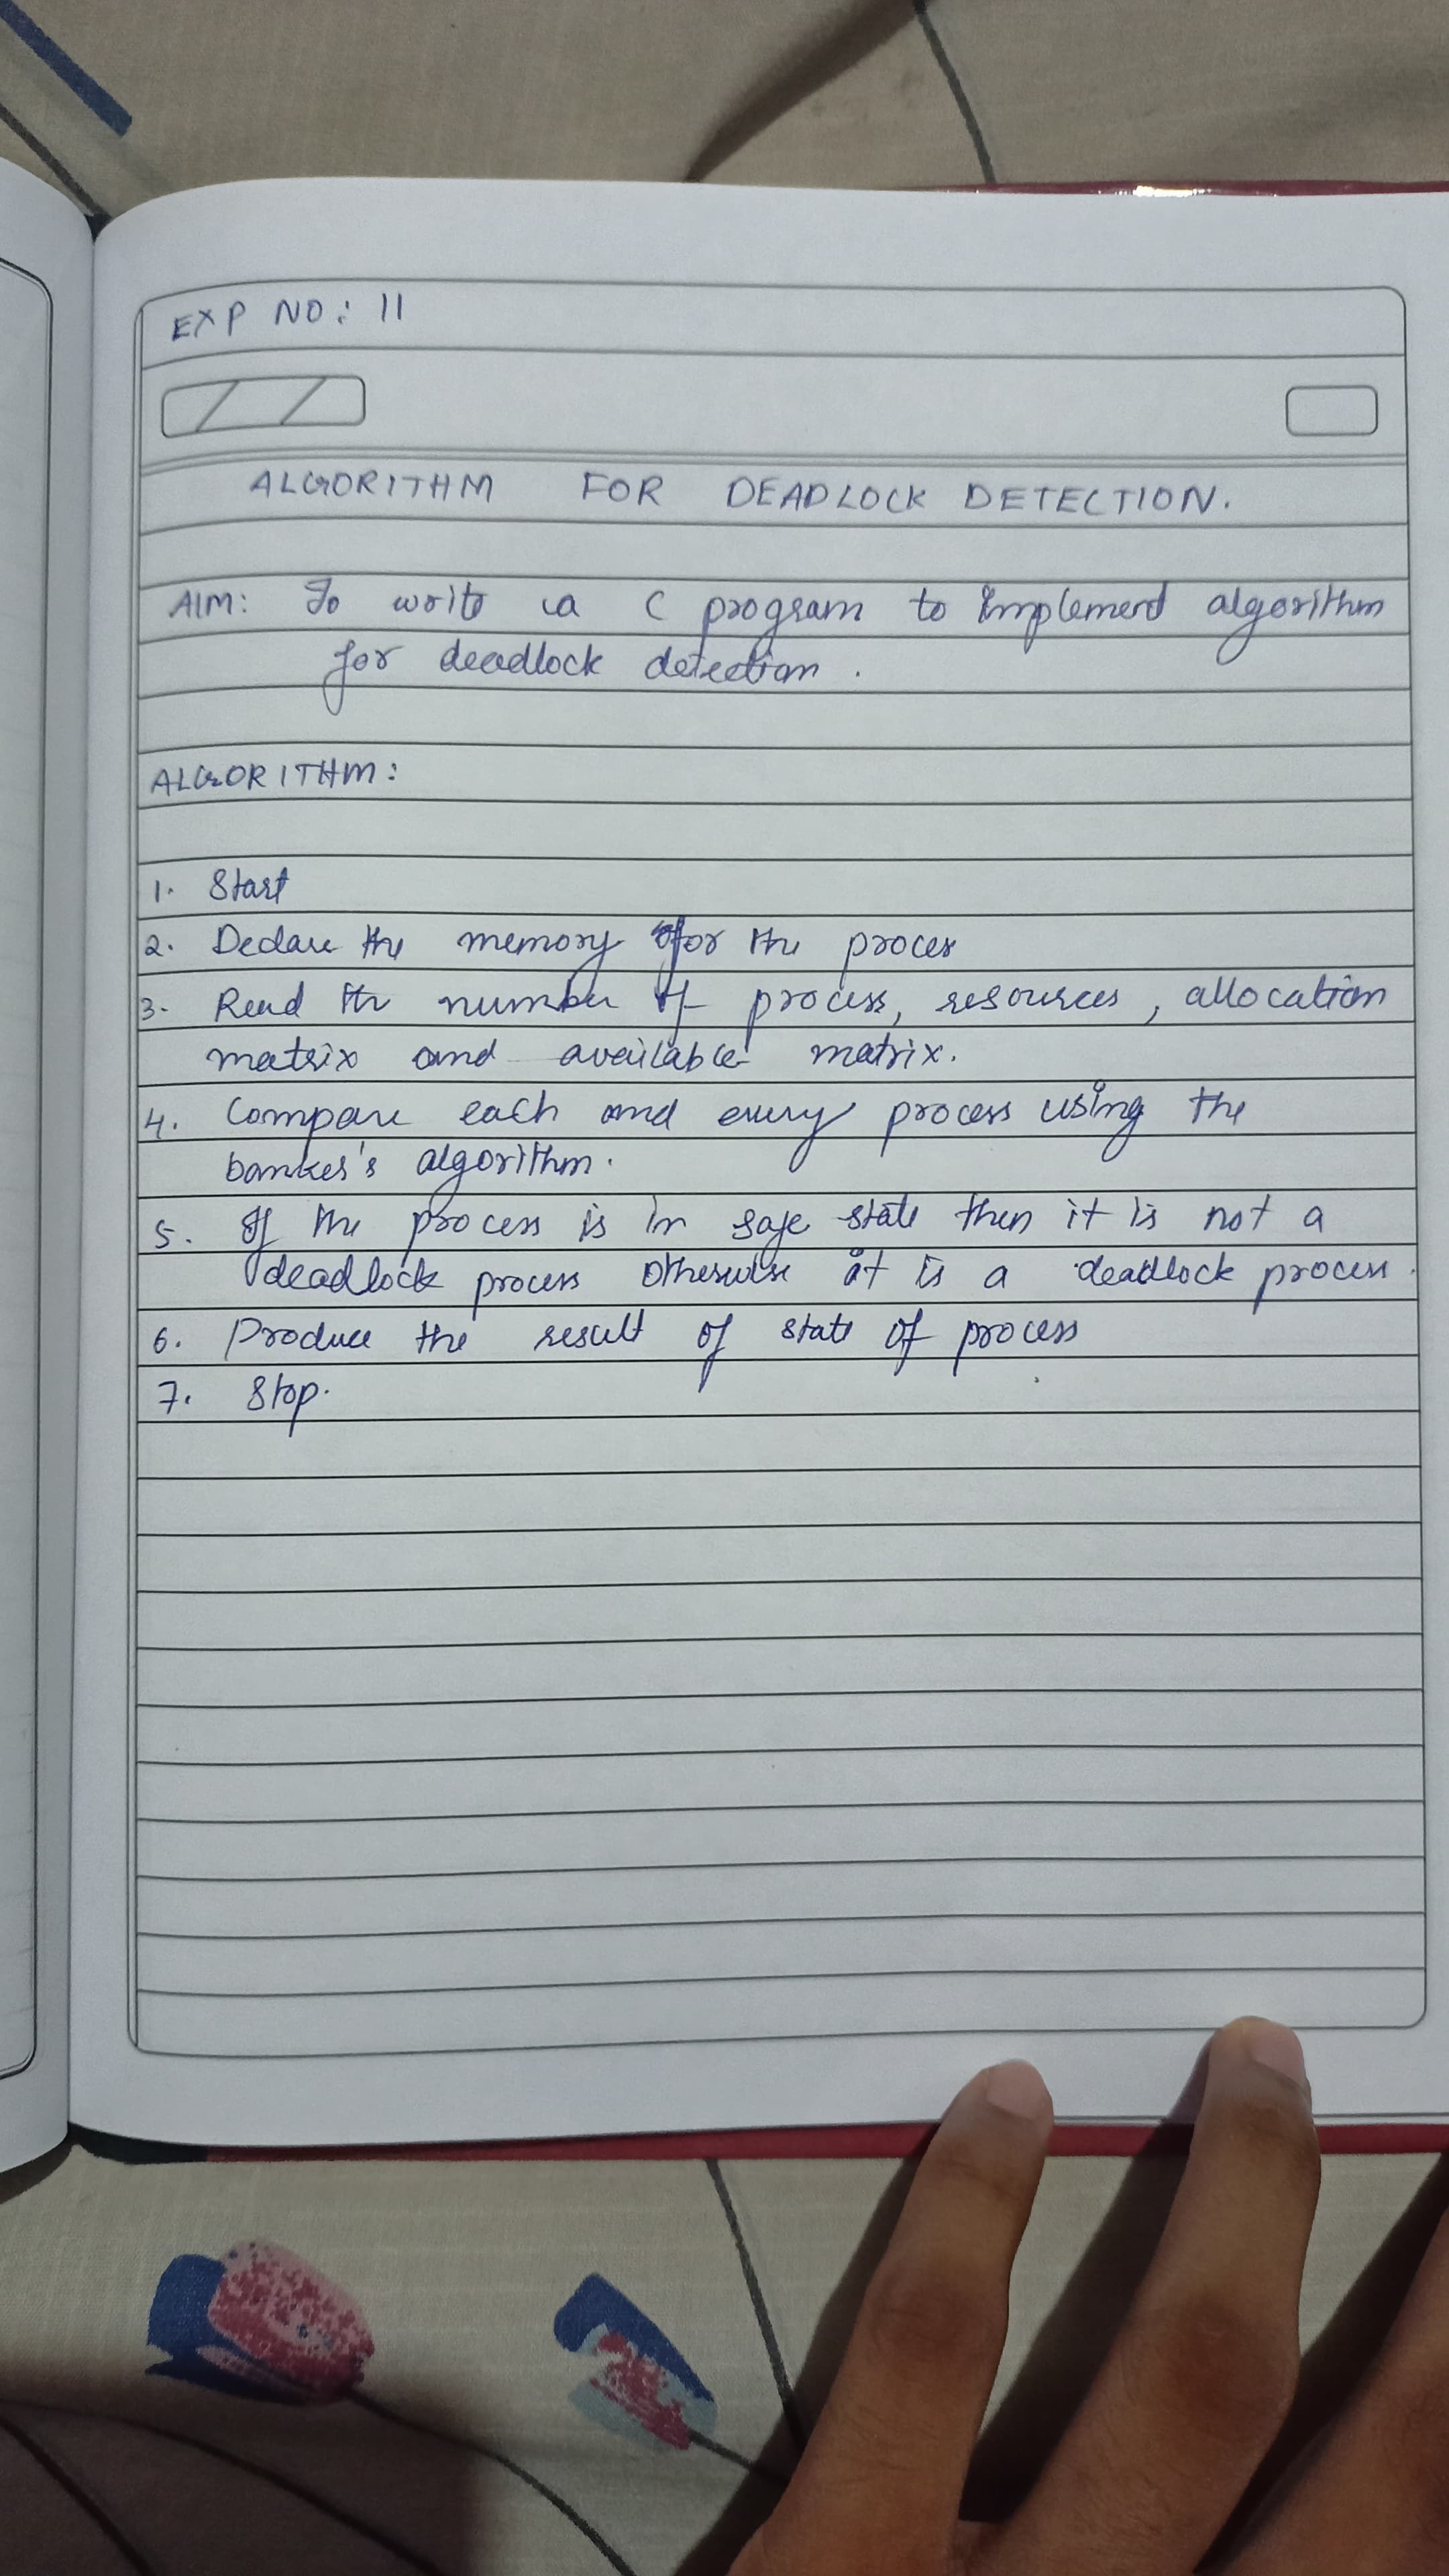 EXP NO: 11
ALGORITHM FOR DEADLOCK DETECTION.
AIM: To write a C program to implement algorithm
for deadlock detection.
ALGORITHM:
1. Start
2. Declare the memory for the process
3. Read the number of process, resources, allocation
matrix and available matrix.
4. Compare each and every process using the
banker's algorithm.
5. If the process is in safe state then it is not a
deadlock process otherwise it is a deadlock process.
6. Produce the result of state of process
7. Stop.